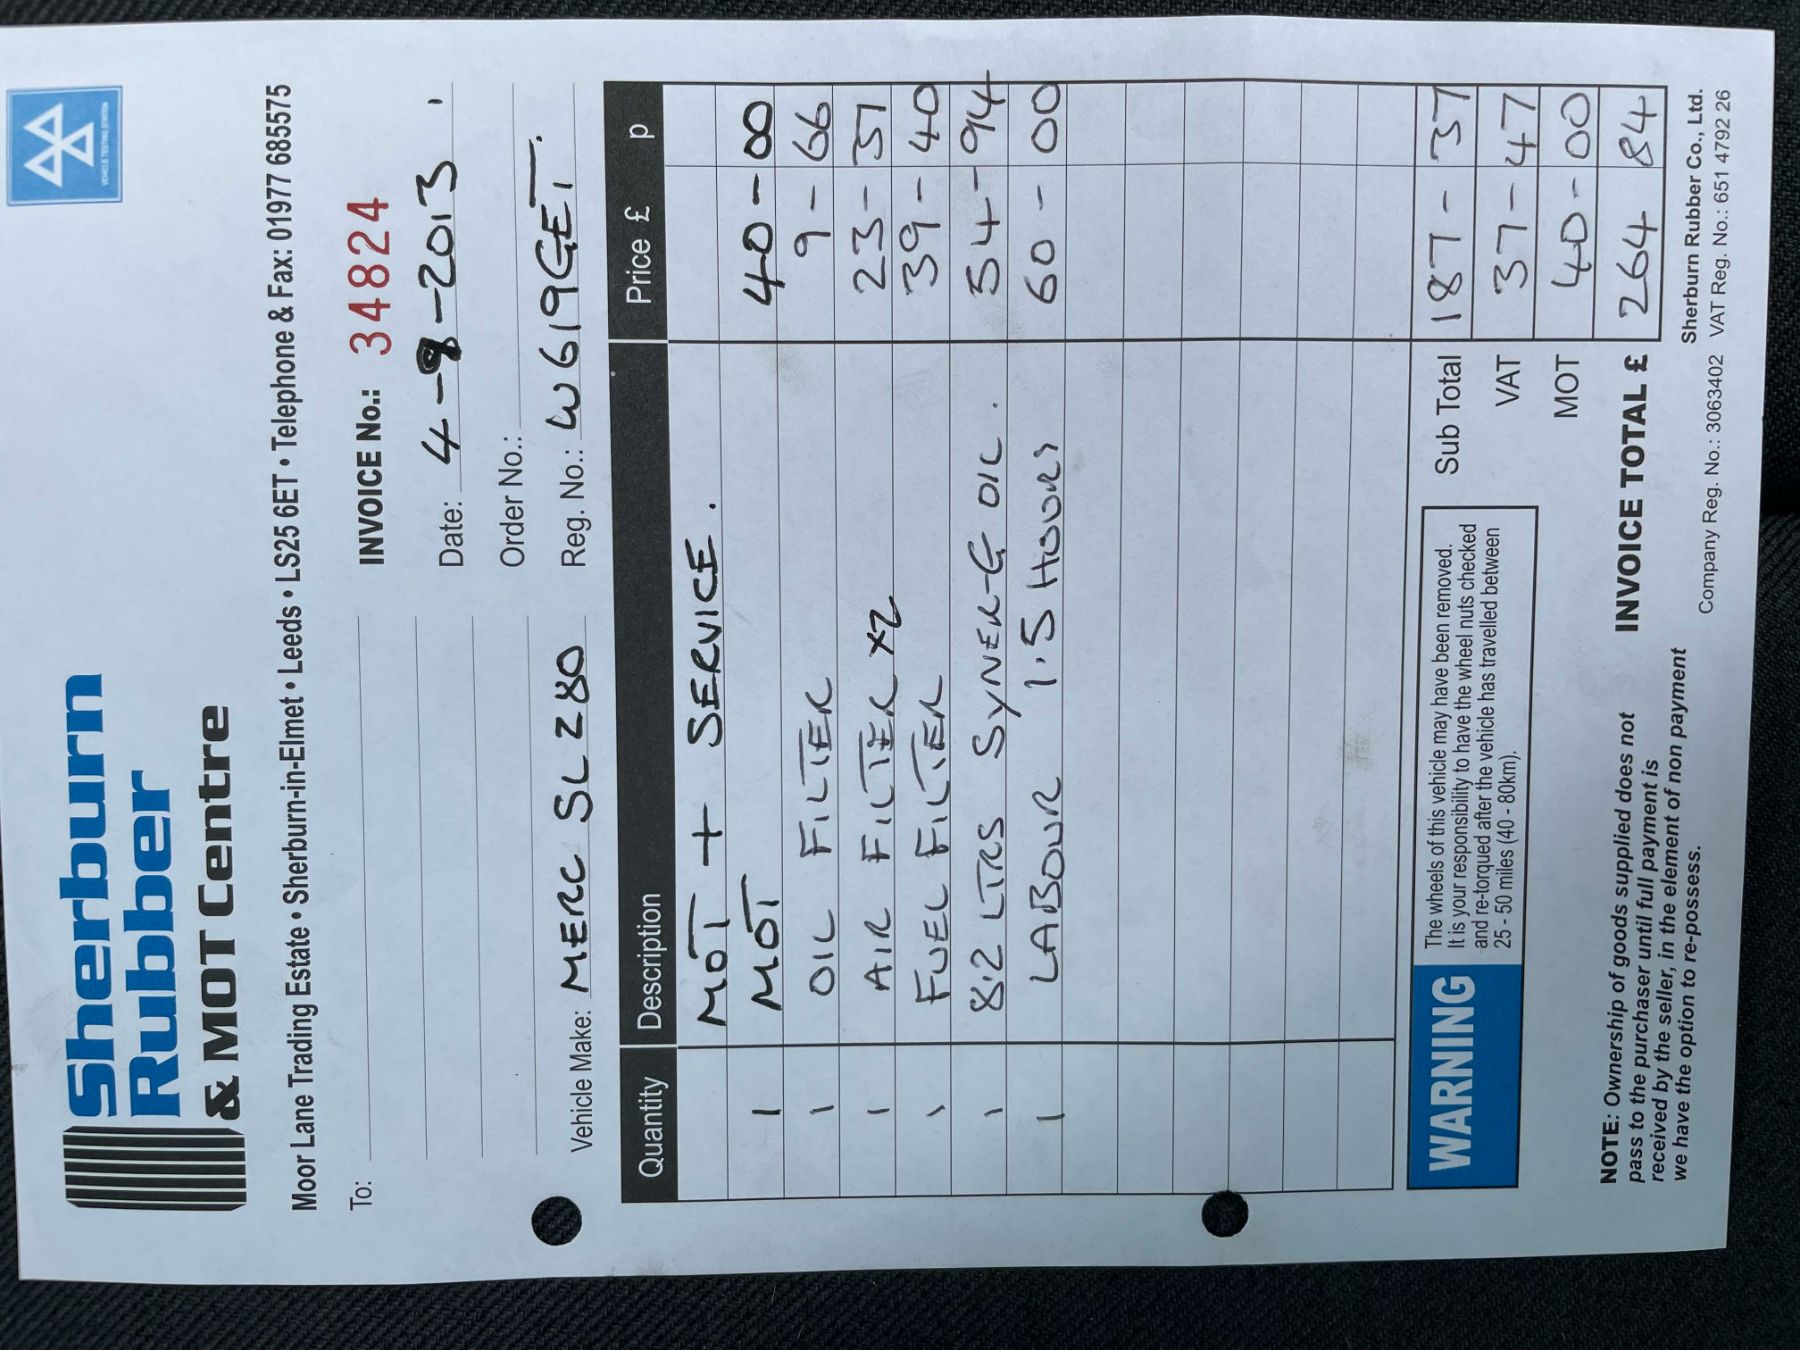 VEHICLE TESTING STATION
Sherburn
Rubber
& MOT Centre
Moor Lane Trading Estate • Sherburn-in-Elmet • Leeds • LS25 6ET • Telephone & Fax: 01977 685575
To:
INVOICE No.: 34824
Date: 4-9-2013
Order No.:
Vehicle Make: MERC SL280 Reg. No.: W619GET.
Quantity Description Price £ p
MOT + SERVICE.
1 MOT 40-00
1 OIL FILTER 9-66
1 AIR FILTER x2 23-37
1 FUEL FILTER 39-40
1 8.2 LTRS SYNERG OIL. 54-94
1 LABOUR 1.5 HOURS 60-00
WARNING
The wheels of this vehicle may have been removed.
It is your responsibility to have the wheel nuts checked
and re-torqued after the vehicle has travelled between
25 - 50 miles (40 - 80km).
Sub Total 187-37
VAT 37-47
MOT 40-00
INVOICE TOTAL £ 264 84
NOTE: Ownership of goods supplied does not
pass to the purchaser until full payment is
received by the seller, in the element of non payment
we have the option to re-possess.
Sherburn Rubber Co., Ltd.
Company Reg. No.: 3063402 VAT Reg. No.: 651 4792 26